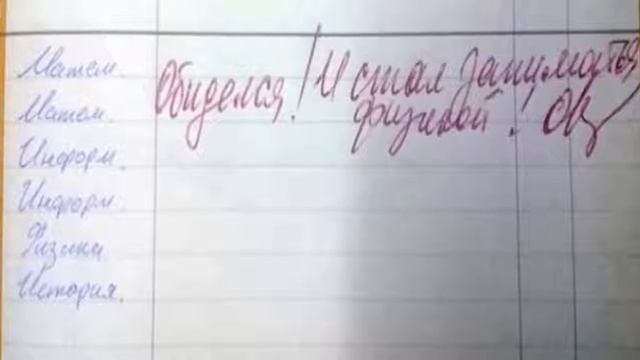 Матем.
Матем.
Информ.
Информ.
Физика
История.
Обиделся! И стал заниматься
физикой!